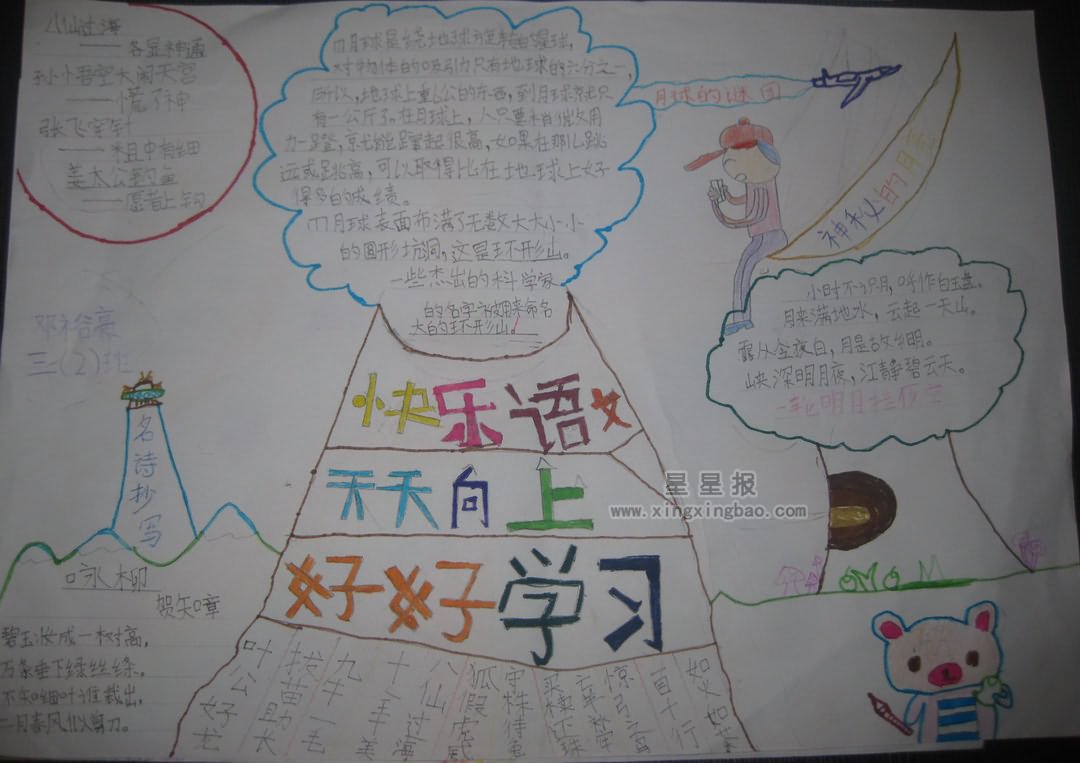 八仙过海
——各显神通
孙小悟空大闹天宫
——慌了神
张飞穿针
——粗中有细
姜太公钓鱼
——愿者上钩
月球是绕地球旋转的星球,
对物体的吸引力只有地球的六分之一,
所以,地球上重6公的东西,到月球就只
有一公斤了。在月球上,人只要稍微用
力一蹬,就能蹿起很高,如果在那儿跳
远或跳高,可以取得比在地球上好
得多的成绩。
月球表面布满了无数大大小小
的圆形坑洞,这是环形山。
一些杰出的科学家
的名字被用来命名
大的环形山。
月球的谜团
神秘的月亮
小时不识月,呼作白玉盘。
月来满地水,云起一天山。
露从今夜白,月是故乡明。
峡深明月夜,江静碧云天。
三(2)班
名诗抄写
咏柳
贺知章
碧玉妆成一树高,
万条垂下绿丝绦。
不知细叶谁裁出,
二月春风似剪刀。
快乐语文
天天向上
好好学习
叶公好龙
拔苗助长
九牛一毛
十全十美
八仙过海
狐假虎威
守株待兔
买椟还珠
亡羊补牢
惊弓之鸟
星星报
www.xingxingbao.com